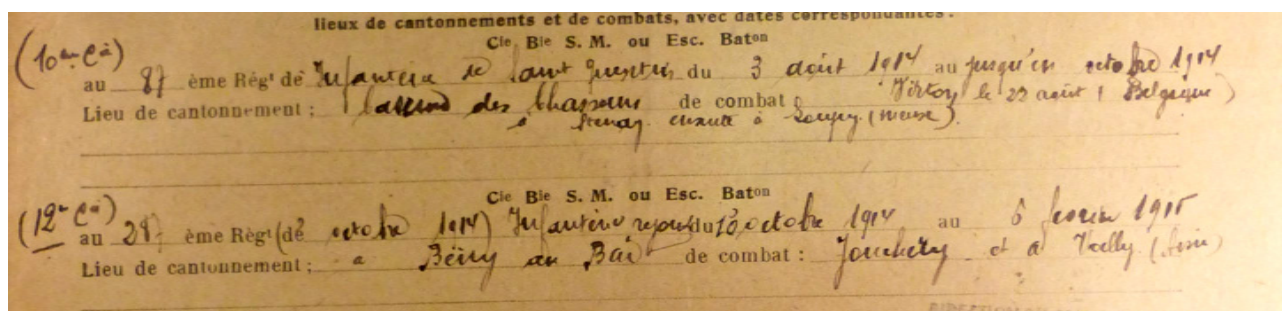 lieux de cantonnements et de combats, avec dates correspondantes :
Cie Bie S. M. ou Esc. Baton
(10e Cie)
au 87 ème Régt de Infanterie de Saint Quentin du 3 août 1914 au jusqu'en octobre 1914
Lieu de cantonnement : des Chasseurs de combat : le 22 août (Belgique)
à Stenay ensuite à (Meuse).
Cie Bie S. M. ou Esc. Baton
(12e Cie)
au 287 ème Règt (de octobre 1914) Infanterie du 10 octobre 1914 au 6 février 1915
Lieu de cantonnement : à au Bac de combat : et à